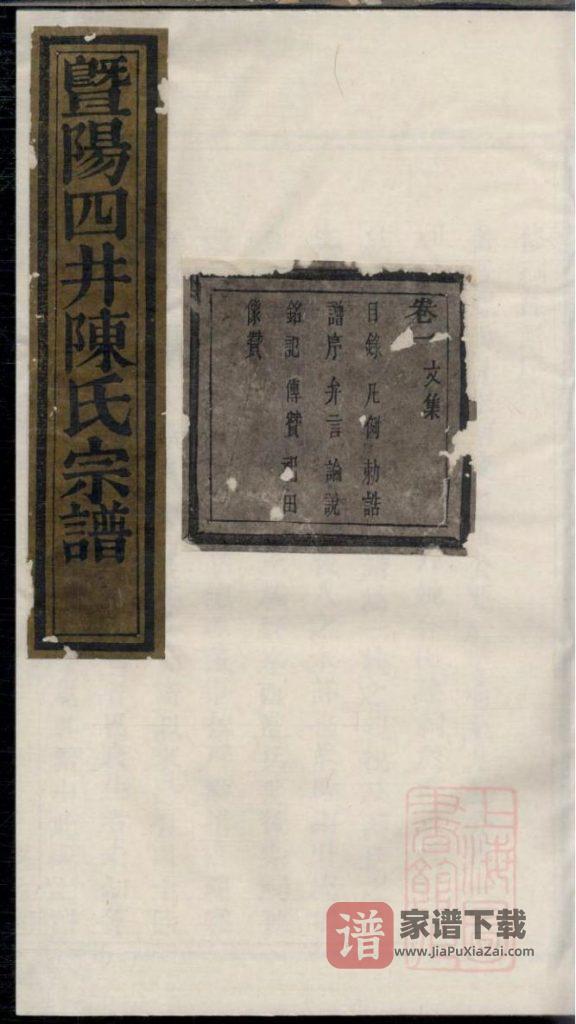 暨陽四井陳氏宗譜
卷一 文集
目錄 凡例 勅誥
譜序 弁言 論說
銘記 傳贊 祀田
像贊
上海圖書館藏
谱 家谱下载
www.JiaPuXiaZai.com